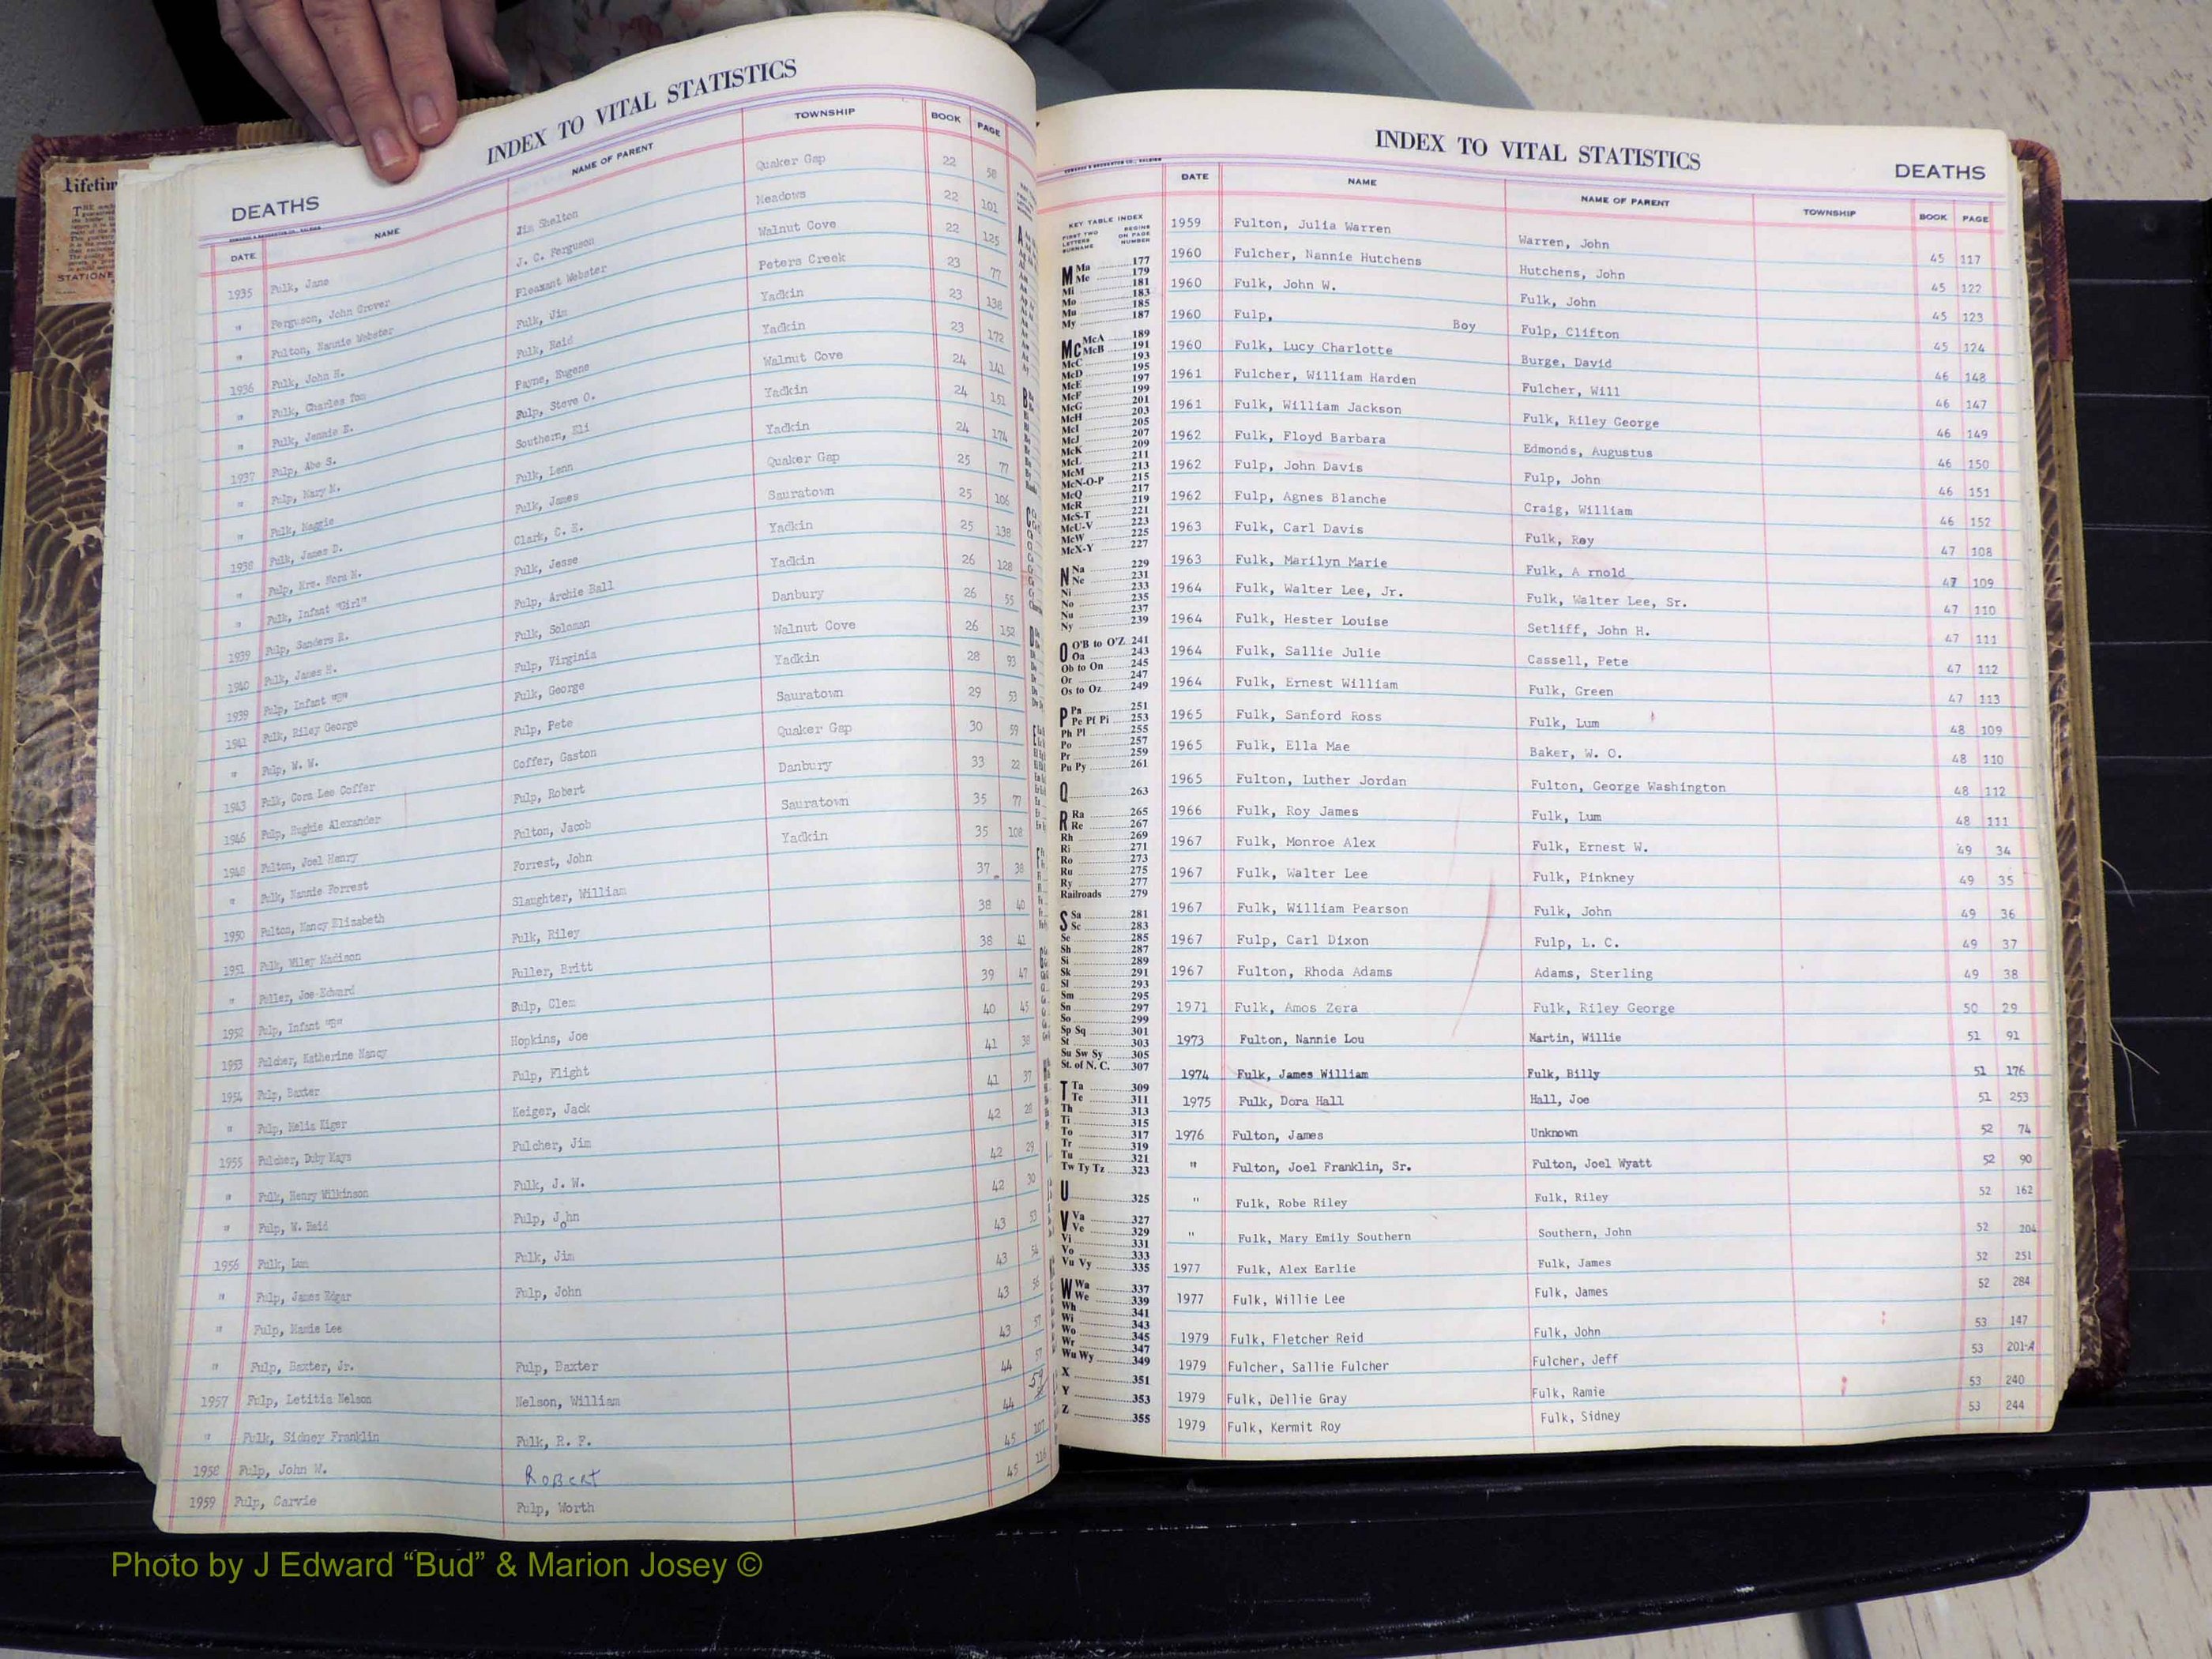 INDEX TO VITAL STATISTICS
DEATHS
DATE NAME NAME OF PARENT TOWNSHIP BOOK PAGE
1935 Fulk, Jane Jim Shelton Quaker Gap 22 58
" Ferguson, John Grover J. C. Ferguson Meadows 22 101
" Fulton, Nannie Webster Pleasant Webster Walnut Cove 22 125
1936 Fulk, John H. Fulk, Jim Peters Creek 23 77
" Fulk, Charles Tom Fulk, Reid Yadkin 23 138
" Fulk, Jennie E. Payne, Eugene Yadkin 23 172
1937 Fulp, Abe S. Fulp, Steve O. Walnut Cove 24 141
" Fulp, Mary M. Southern, Eli Yadkin 24 151
" Fulk, Maggie Fulk, Lenn Yadkin 24 174
1938 Fulk, James D. Fulk, James Quaker Gap 25 77
" Fulp, Mrs. Nora M. Clark, C. E. Sauratown 25 106
" Fulk, Infant "Girl" Fulk, Jesse Yadkin 25 138
1939 Fulp, Sanders R. Fulp, Archie Ball Yadkin 26 128
1940 Fulk, James H. Fulk, Soloman Danbury 26 55
1939 Fulp, Infant "B" Fulp, Virginia Walnut Cove 26 152
1941 Fulk, Riley George Fulk, George Yadkin 28 93
" Fulp, W. W. Fulp, Pete Sauratown 29 53
1943 Fulk, Cora Lee Coffer Coffer, Gaston Quaker Gap 30 59
1946 Fulp, Hughie Alexander Fulp, Robert Danbury 33 22
1948 Fulton, Joel Henry Fulton, Jacob Sauratown 35 77
" Fulk, Nannie Forrest Forrest, John Yadkin 35 108
1950 Fulton, Nancy Elizabeth Slaughter, William 37 38
1951 Fulk, Wiley Madison Fulk, Riley 38 40
" Fuller, Joe Edward Fuller, Britt 38 41
1952 Fulp, Infant "B" Fulp, Clem 39 47
1953 Fulcher, Katherine Nancy Hopkins, Joe 40 45
1954 Fulp, Baxter Fulp, Flight 41 38
" Fulp, Melia Kiger Keiger, Jack 41 37
1955 Fulcher, Duby Mays Fulcher, Jim 42 28
" Fulk, Henry Wilkinson Fulk, J. W. 42 29
" Fulp, W. Reid Fulp, John 42 30
1956 Fulk, Lum Fulk, Jim 43 53
" Fulp, James Edgar Fulp, John 43 54
" Fulp, Mamie Lee 43 56
" Fulp, Baxter, Jr. Fulp, Baxter 43 57
1957 Fulp, Letitia Nelson Nelson, William 44 57
" Fulk, Sidney Franklin Fulk, R. F. 44 59
1958 Fulp, John W. Robert 45 107
1959 Fulp, Carvie Fulp, Worth 45 116
Lifetim
STATIONE
INDEX TO VITAL STATISTICS
DEATHS
DATE NAME NAME OF PARENT TOWNSHIP BOOK PAGE
1959 Fulton, Julia Warren Warren, John 45 117
1960 Fulcher, Nannie Hutchens Hutchens, John 45 122
1960 Fulk, John W. Fulk, John 45 123
1960 Fulp, Boy Fulp, Clifton 45 124
1960 Fulk, Lucy Charlotte Burge, David 46 148
1961 Fulcher, William Harden Fulcher, Will 46 147
1961 Fulk, William Jackson Fulk, Riley George 46 149
1962 Fulk, Floyd Barbara Edmonds, Augustus 46 150
1962 Fulp, John Davis Fulp, John 46 151
1962 Fulp, Agnes Blanche Craig, William 46 152
1963 Fulk, Carl Davis Fulk, Roy 47 108
1963 Fulk, Marilyn Marie Fulk, A rnold 47 109
1964 Fulk, Walter Lee, Jr. Fulk, Walter Lee, Sr. 47 110
1964 Fulk, Hester Louise Setliff, John H. 47 111
1964 Fulk, Sallie Julie Cassell, Pete 47 112
1964 Fulk, Ernest William Fulk, Green 47 113
1965 Fulk, Sanford Ross Fulk, Lum 48 109
1965 Fulk, Ella Mae Baker, W. O. 48 110
1965 Fulton, Luther Jordan Fulton, George Washington 48 112
1966 Fulk, Roy James Fulk, Lum 48 111
1967 Fulk, Monroe Alex Fulk, Ernest W. 49 34
1967 Fulk, Walter Lee Fulk, Pinkney 49 35
1967 Fulk, William Pearson Fulk, John 49 36
1967 Fulp, Carl Dixon Fulp, L. C. 49 37
1967 Fulton, Rhoda Adams Adams, Sterling 49 38
1971 Fulk, Amos Zera Fulk, Riley George 50 29
1973 Fulton, Nannie Lou Martin, Willie 51 91
1974 Fulk, James William Fulk, Billy 51 176
1975 Fulk, Dora Hall Hall, Joe 51 253
1976 Fulton, James Unknown 52 74
" Fulton, Joel Franklin, Sr. Fulton, Joel Wyatt 52 90
" Fulk, Robe Riley Fulk, Riley 52 162
" Fulk, Mary Emily Southern Southern, John 52 204
1977 Fulk, Alex Earlie Fulk, James 52 251
1977 Fulk, Willie Lee Fulk, James 52 284
1979 Fulk, Fletcher Reid Fulk, John 53 147
1979 Fulcher, Sallie Fulcher Fulcher, Jeff 53 201-A
1979 Fulk, Dellie Gray Fulk, Ramie 53 240
1979 Fulk, Kermit Roy Fulk, Sidney 53 244
KEY TABLE INDEX
FIRST TWO LETTERS SURNAME BEGINS ON PAGE NUMBER
M Ma 177
Me 179
Mi 181
Mo 183
Mu 185
My 187
Mc McA 189
McB 191
McC 193
McD 195
McE 197
McF 199
McG 201
McH 203
McI 205
McJ 207
McK 209
McL 211
McM 213
McN-O-P 215
McQ 217
McR 219
McS-T 221
McU-V 223
McW 225
McX-Y 227
N Na 229
Ne 231
Ni 233
No 235
Nu 237
Ny 239
O O'B to O'Z 241
Oa 243
Ob to On 245
Or 247
Os to Oz 249
P Pa 251
Pe Pf Pi 253
Ph Pl 255
Po 257
Pr 259
Pu Py 261
Q 263
R Ra 265
Re 267
Rh 269
Ri 271
Ro 273
Ru 275
Ry 277
Railroads 279
S Sa 281
Sc 283
Se 285
Sh 287
Si 289
Sk 291
Sl 293
Sm 295
Sn 297
So 299
Sp Sq 301
St 303
Su Sw Sy 305
St. of N. C. 307
T Ta 309
Te 311
Th 313
Ti 315
To 317
Tr 319
Tu 321
Tw Ty Tz 323
U 325
V Va 327
Ve 329
Vi 331
Vo 333
Vu Vy 335
W Wa 337
We 339
Wh 341
Wi 343
Wo 345
Wr 347
Wu Wy 349
X 351
Y 353
Z 355
Photo by J Edward “Bud” & Marion Josey ©